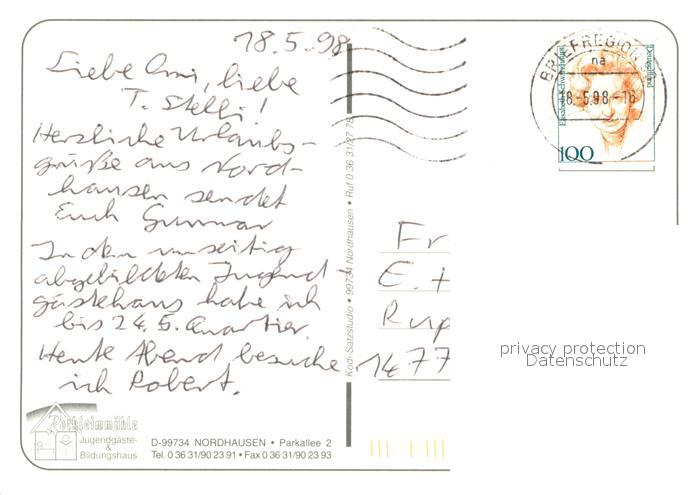 18.5.98
Liebe Omi, liebe
T. Steffi!
Herzliche Urlaubs-
grüße aus Nord-
hausen sendet
Euch Gunnar
In dem umseitig
abgebildeten Jugend
gästehaus habe ich
bis 24.5. Quartier.
Heute Abend besuche
ich Robert.
Rothleimmühle
Jugendgäste-
&
Bildungshaus
D-99734 NORDHAUSEN • Parkallee 2
Tel. 0 36 31/90 23 91 • Fax 0 36 31/90 23 93
Kodi-Satzstudio • 99734 Nordhausen • Ruf 0 36 31/27 78
BRIEFREGION
na
18.-5.98-18
Deutschland
100
Fr
E. +
Rup
1477
privacy protection
Datenschutz